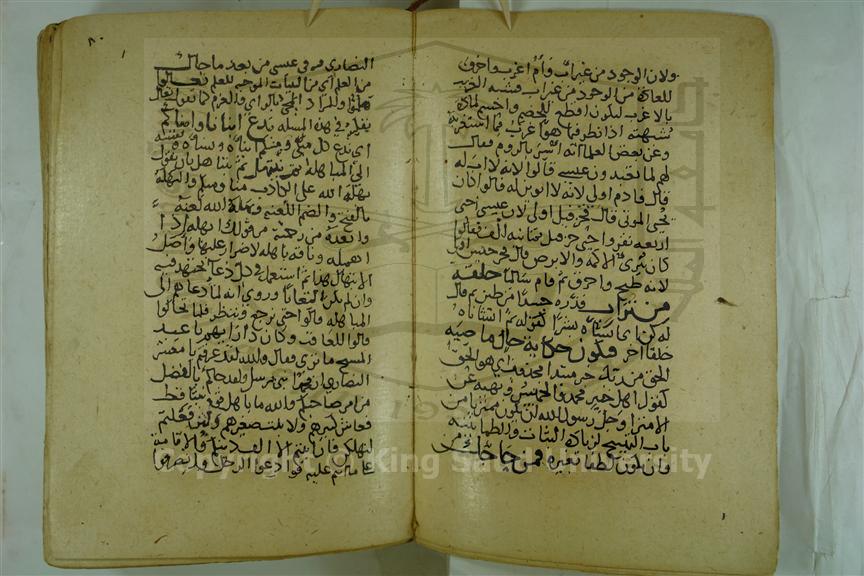 ولان الوجود من غير اب وام اغرب واخرق
للعادة من الوجود من غير اب فشبه الغريب
بالاغرب ليكون اقطع للخصم واحسم لمادة
شبهته اذا نظر فيما هو اغرب مما استغربه
وعن بعض العلما انه اسر بالروم فقال
لهم لم تعبدون عيسى قالوا لانه لا اب له
قال فادم اولى لانه لا ابوين له قالوا كان
يحيي الموتى قال فحزقيل اولى لان عيسى احيى
اربعة نفر واحيى حزقيل ثمانية الف فقالوا
كان يبرئ الاكمه والابرص قال فجرجيس اولى
لانه طبخ واحرق ثم قام سالما خلقه
من تراب قدره جسدا من طين ثم قال
له كن اي انشاه بشرا كقوله ثم انشاناه
خلقا اخر فيكون حكاية حال ماضية
الحق من ربك خبر مبتدا محذوف اي هو الحق
كقول اهل خيبر محمد والخميس ونهيه عن
الامترا وجل رسول الله ان يكون ممتريا من
باب التهييج لزيادة الثبات والطمانينة
وان يكون لطفا لغيره فمن حاجك من
٨٠
النصارى فيه في عيسى من بعد ما جاك
من العلم اي من البينات الموجبه للعلم تعالوا
هلموا والمراد المجي بالراي والعزم كما تقول تعال
نفكر في هذه المسله ندع ابنانا وابناكم
اي يدع كل مني ومنكم ابناه ونساه ونفسه
الى المباهلة ثم نبتهل ثم نتباهل بان نقول
بهلة الله على الكاذب منا ومنكم والبهلة
بالفتح والضم اللعنه وبهله الله لعنه
وابعده من رحمته من قولك ابهله اذا
اهمله وناقه باهله لا صرار عليها واصل
الابتهال هذا ثم استعمل في كل دعا يجتهد فيه
وان لم يكن التعانا وروي انه لما دعاهم الى
المباهله قالوا حتى نرجع وننظر فلما تخالوا
قالوا للعاقب وكان ذا رايهم يا عبد
المسيح ما ترى فقال والله لقد عرفتم يا معشر
النصارى ان محمدا نبي مرسل ولقد جاكم بالفصل
من امر صاحبكم والله ما باهل قوم نبيا قط
فعاش كبيرهم ولا نبت صغيرهم ولئن فعلتم
لتهلكن فان ابيتم الا الف دينكم والاقامة
على ما انتم عليه فوادعوا الرجل وانصرفوا
Copyright © King Saud University